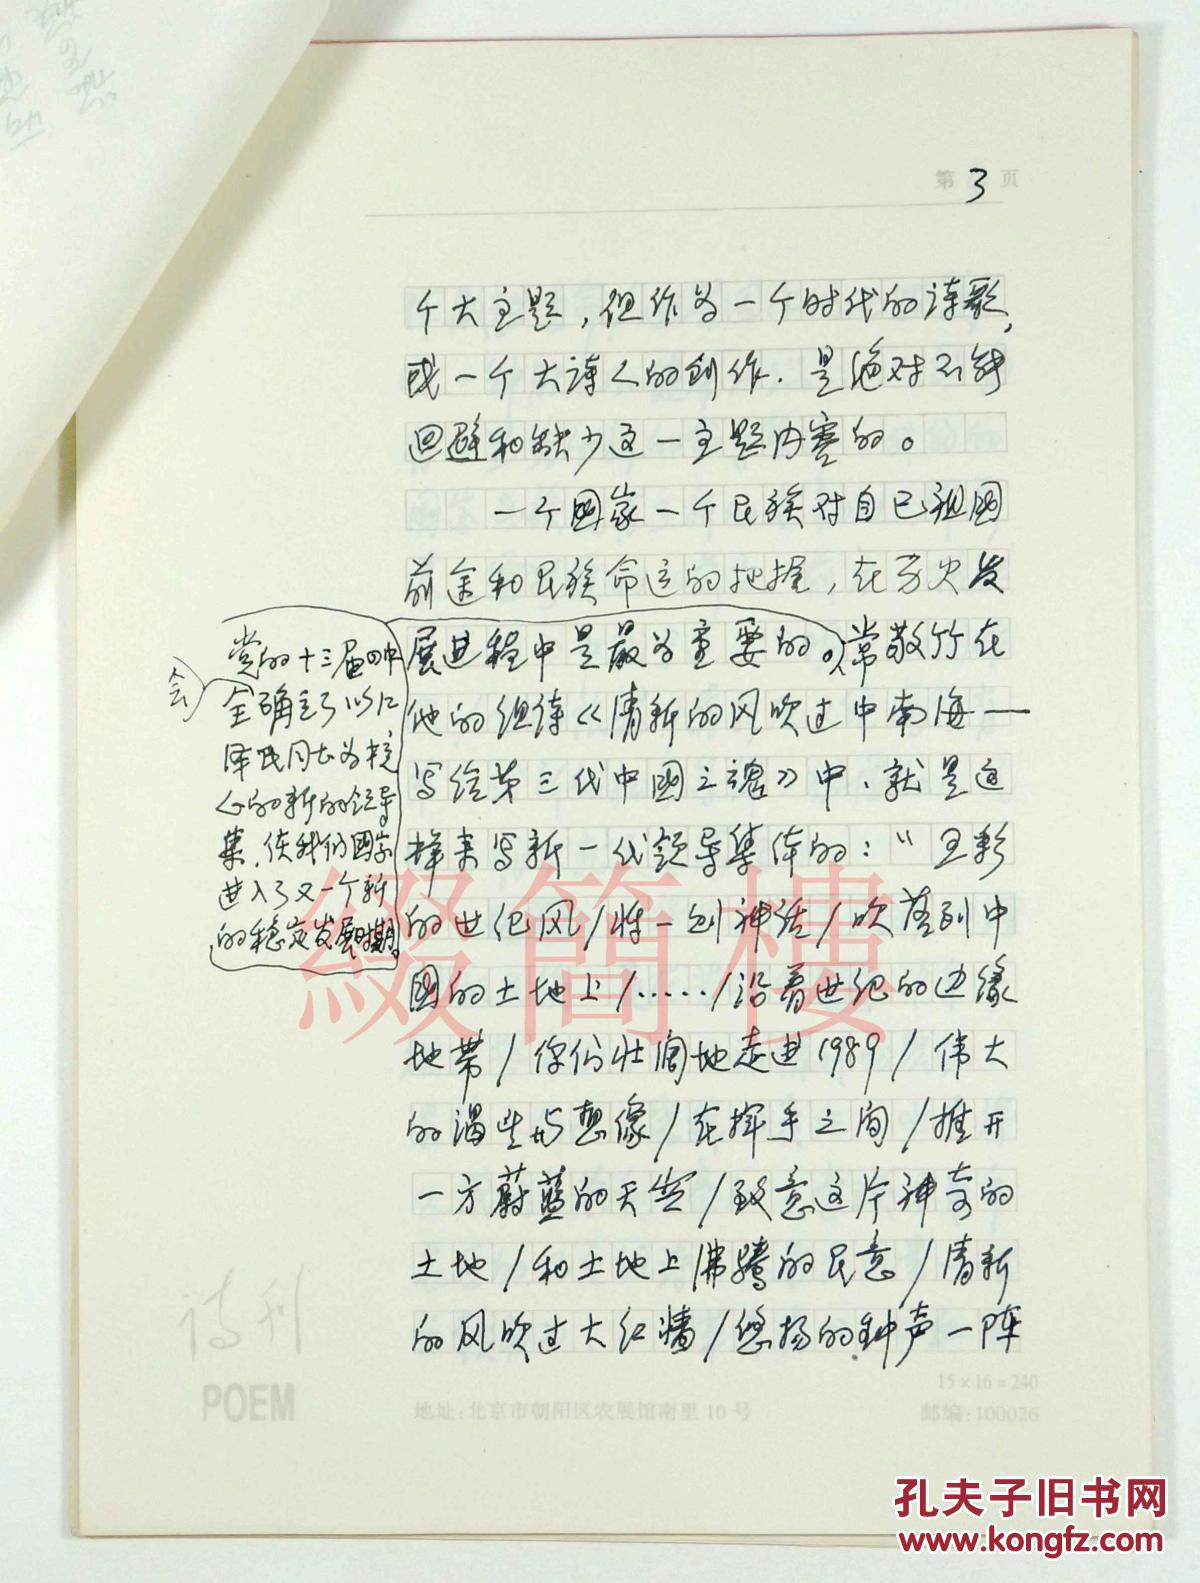 第3页
个大主题，但作为一个时代的诗歌，
或一个大诗人的创作．是绝对不能
回避和缺少这一主题内容的。
一个国家一个民族对自己祖国
前途和民族命运的把握，在历史发
展进程中是最为重要的。常敬竹在
他的组诗《清新的风吹过中南海—
写给第三代中国之魂》中．就是这
样来写新一代领导集体的："五彩
的世纪风/将一则神话/吹落到中
国的土地上/……/沿着世纪的边缘
地带/你们壮阔地走进1989/伟大
的渴望与想像/在挥手之间/推开
一方蔚蓝的天空/致意这片神奇的
土地/和土地上沸腾的民意/清新
的风吹过大红墙/悠扬的钟声一阵
党的十三届四中
全会确立了以江
泽民同志为核
心的新的领导
集，使我们国家
进入了又一个新
的稳定发展时期。
綴簡樓
诗刊
POEM
15×16=240
地址:北京市朝阳区农展馆南里10号
邮编:100026
孔夫子旧书网
www.kongfz.com